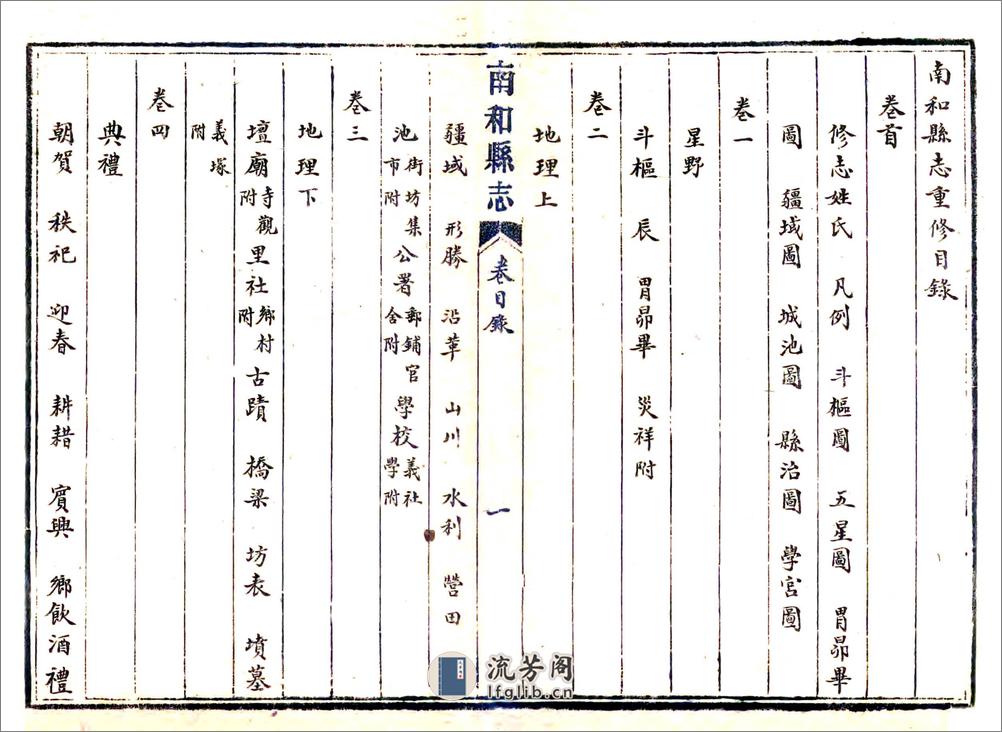 南和縣志重修目錄
卷首
修志姓氏 凡例 斗樞圖 五星圖 胃昴畢
圖 疆域圖 城池圖 縣治圖 學宮圖
卷一
星野
斗樞 辰 胃昴畢 災祥附
卷二
地理上
南和縣志 卷目錄 一
疆域 形勝 沿革 山川 水利 營田
池 街坊集市附 公署 郵鋪官舍附 學校 義社學附
卷三
地理下
壇廟 寺觀附 里社 鄉村附 古蹟 橋梁 坊表 墳墓
義塚附
卷四
典禮
朝賀 秩祀 迎春 耕耤 賓興 鄉飲酒禮
流芳阁
lfglib.cn